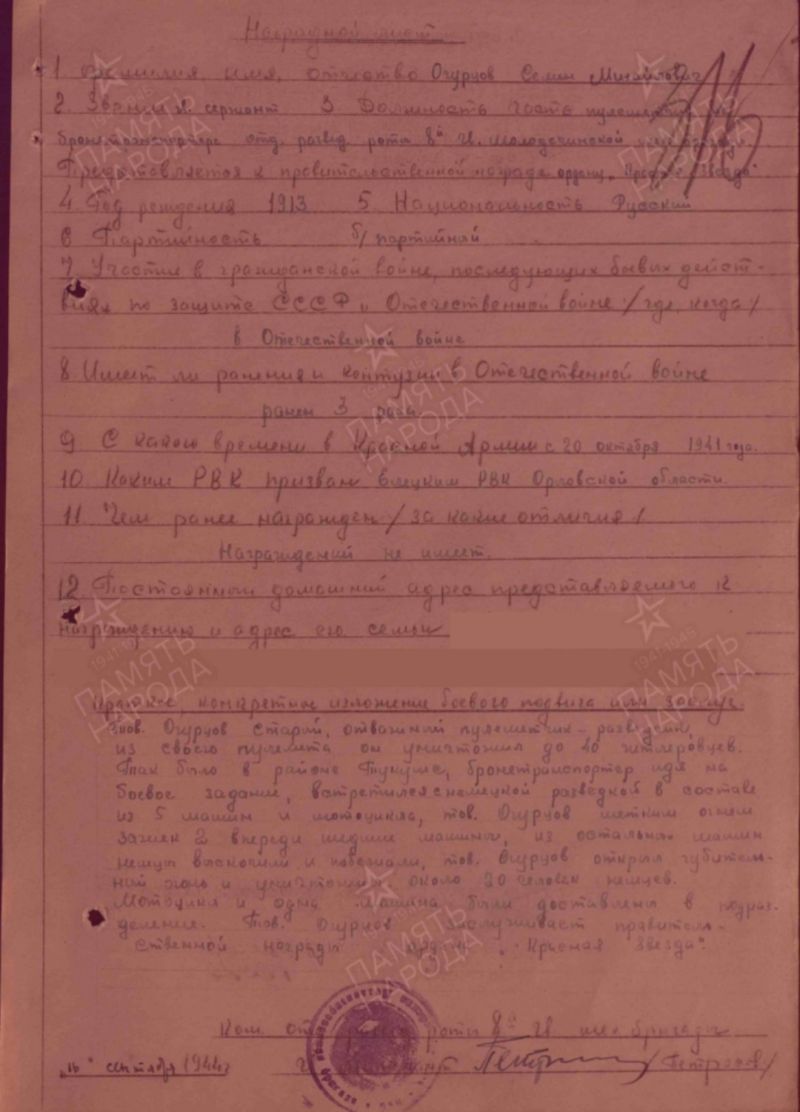 Наградной лист
1 Фамилия имя, отчество Огурцов Семен Михайлович
2. Звание гв. сержант 3 Должность часть пулеметчик на
бронетранспортере отд. развед. роты 8й гв. Молодечненской мех. бригады
Представляется к правительственной награде ордену „Красная Звезда"
4 Год рождения 1913 5 Национальность Русский
6 Партийность б/партийный
7 Участие в гражданской войне, последующих боевых дейст-
виях по защите СССР и Отечественной войне /где, когда/
в Отечественной войне
8 Имеет ли ранения и контузии в Отечественной войне
ранен 3 раза.
9 С какого времени в Красной Армии с 20 октября 1941 года.
10 Каким РВК призван Елецким РВК Орловской области.
11 Чем ранее награжден /за какие отличия/
Награждений не имеет.
12 Постоянный домашний адрес представляемого к
награждению и адрес его семьи
Краткое, конкретное изложение боевого подвига или заслуг.
Тов. Огурцов старый, отважный пулеметчик-разведчик,
из своего пулемета он уничтожил до 40 гитлеровцев.
Так было в районе Тукумс, бронетранспортер идя на
боевое задание, встретился с немецкой разведкой в составе
из 5 машин и мотоцикла, тов. Огурцов метким огнем
зажег 2 впереди шедшие машины, из остальных машин
немцы выскочили и побежали, тов. Огурцов открыл губитель-
ный огонь и уничтожил около 20 человек немцев.
Мотоцикл и одна машина были доставлены в подраз-
деление. Тов. Огурцов заслуживает правитель-
ственной награды орден „Красная Звезда".
Ком. отд. развед. роты 8й гв. мех бригады
„16" сентября 1944г. Петрин /Петросов/
ПАМЯТЬ НАРОДА
1941-1945